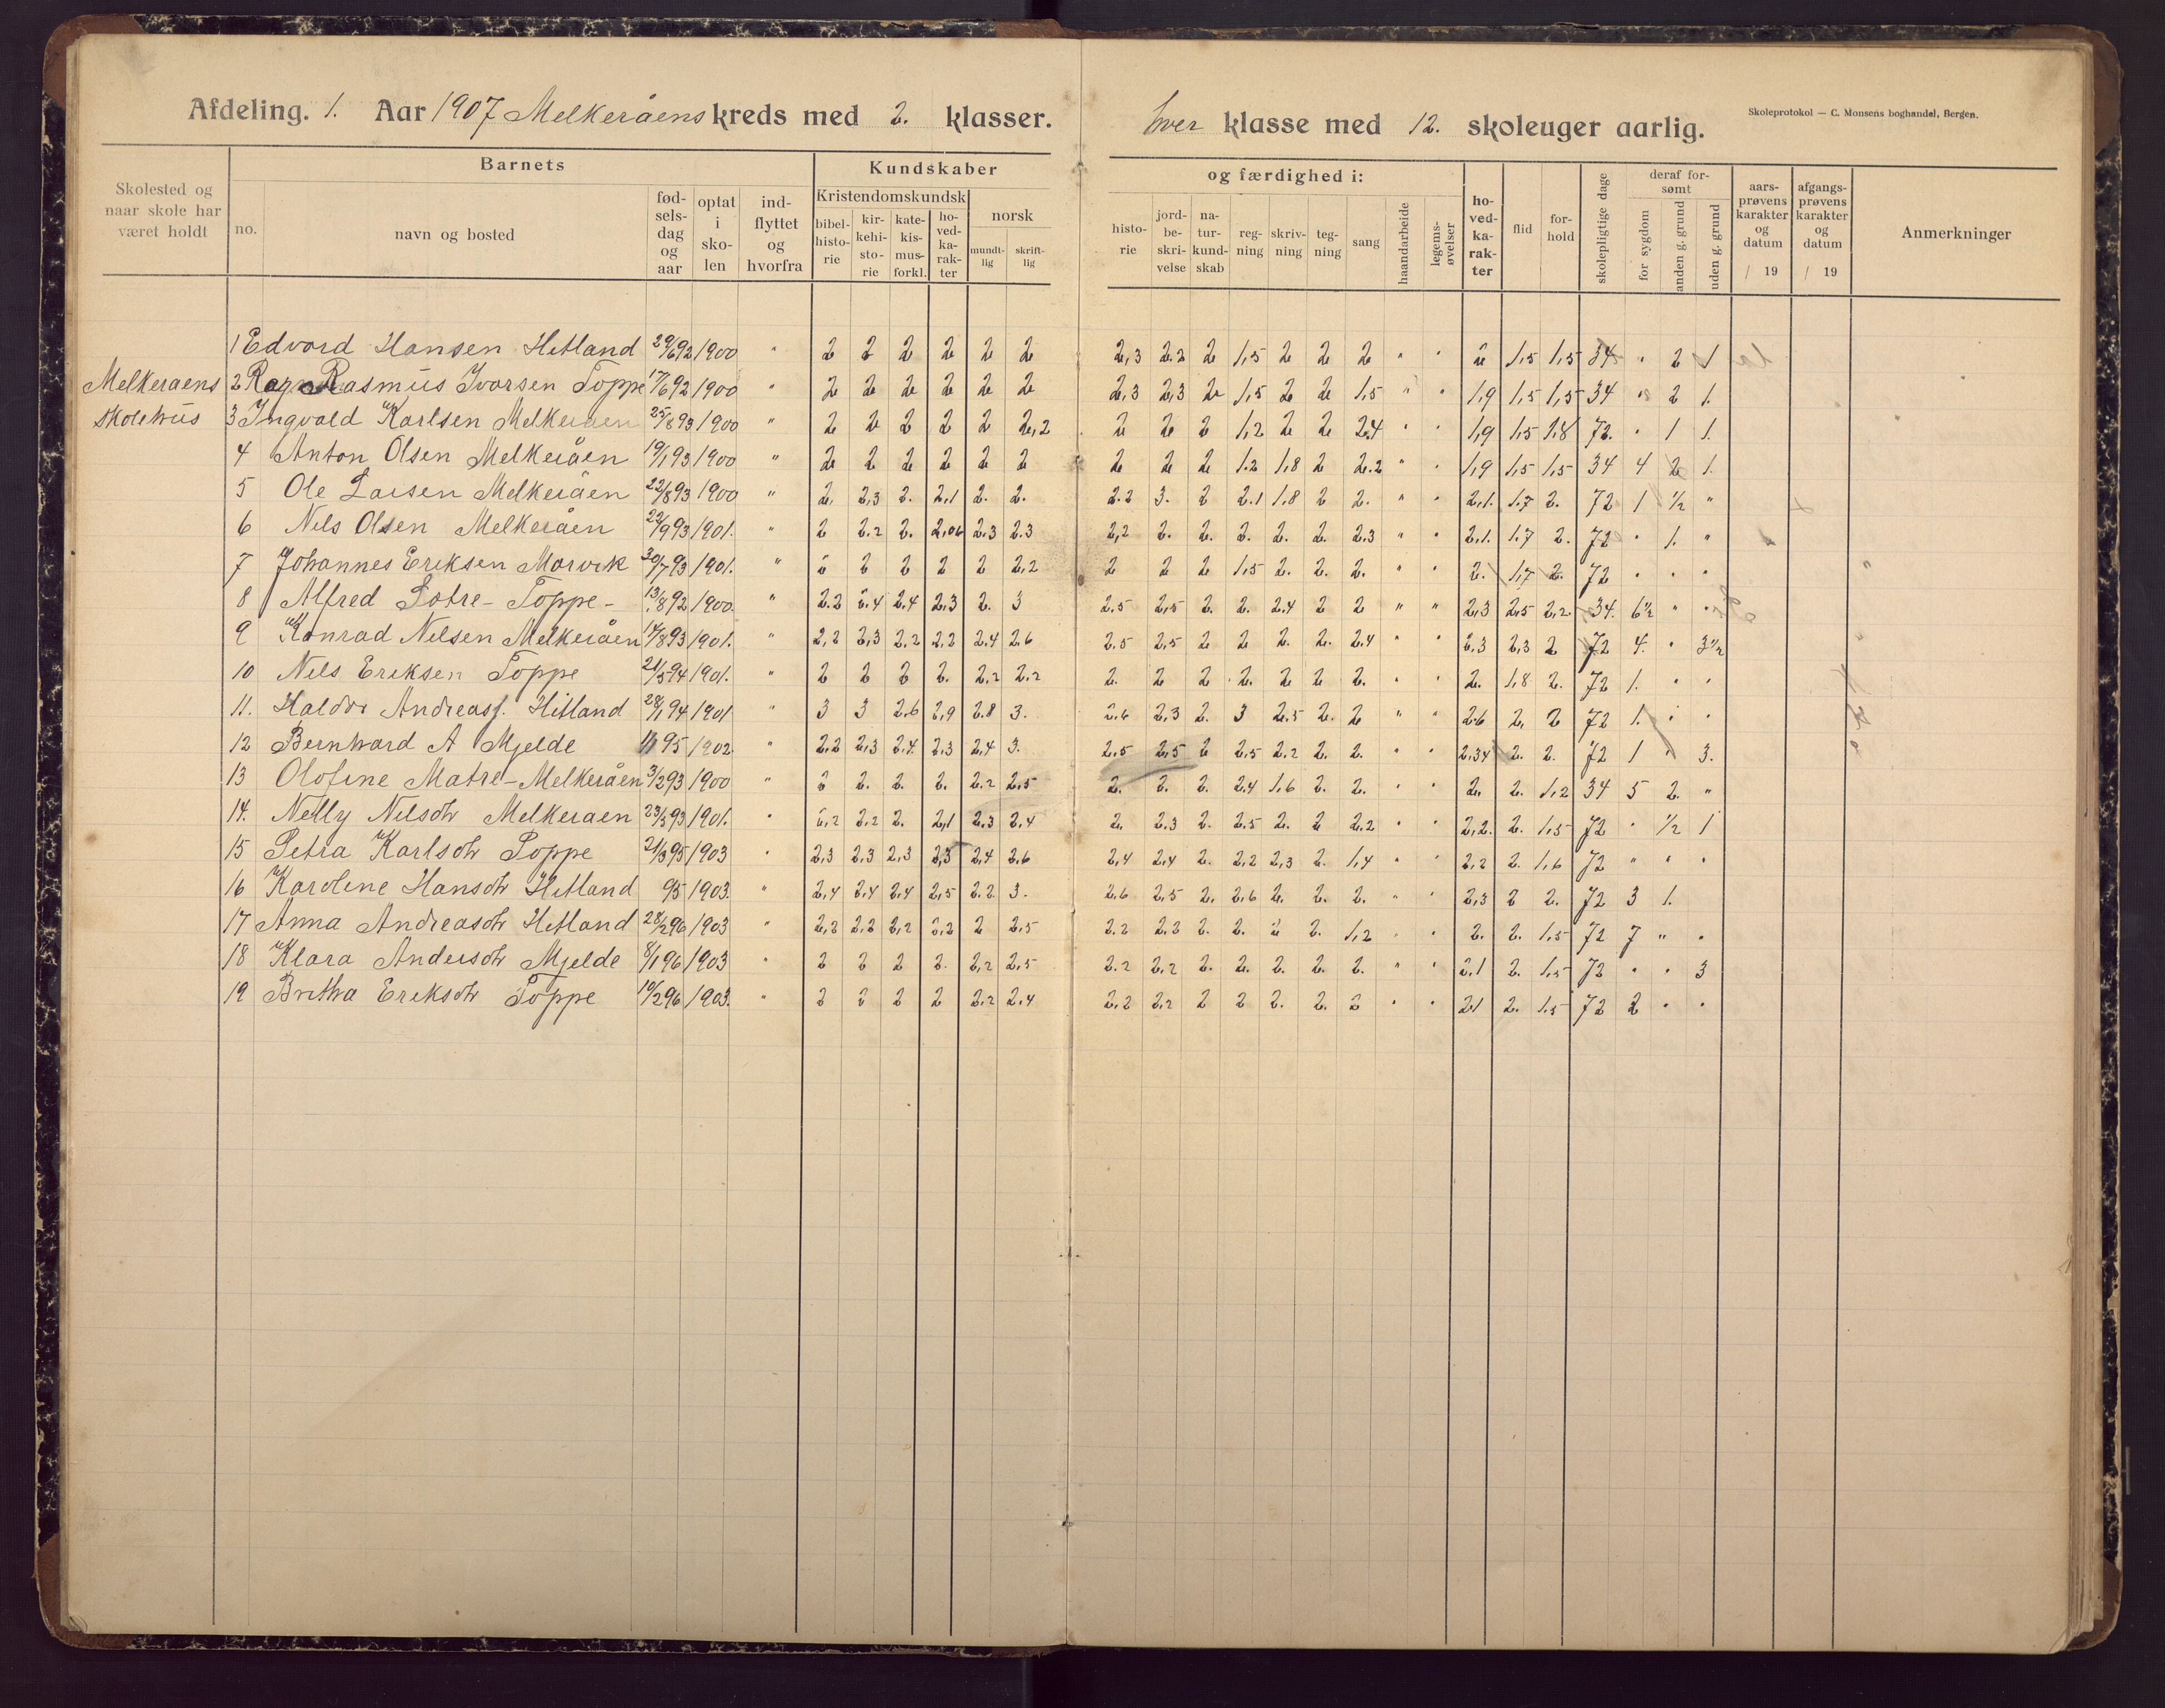 Afdeling. 1. Aar 1907 Melkeråens kreds med 2. klasser.
hver klasse med 12. skoleuger aarlig.
Skoleprotokol — C. Monsens boghandel, Bergen.
Skolested og naar skole har været holdt
Barnets
no.
navn og bosted
fød-sels-dag og aar
optat i sko-len
ind-flyttet og hvorfra
Kundskaber
Kristendomskundsk
bibel-histo-rie
kir-kehi-sto-rie
kate-kis-mus-forkl.
ho-ved-ka-rak-ter
norsk
mundt-lig
skrift-lig
og færdighed i:
histo-rie
jord-be-skri-velse
na-tur-kund-skab
reg-ning
skriv-ning
teg-ning
sang
haandarbeide
legems-øvelser
ho-ved-ka-rak-ter
flid
for-hold
skolepligtige dage
deraf for-sømt
for sygdom
anden g. grund
uden g. grund
aars-prøvens karakter og datum / 19
afgangs-prøvens karakter og datum / 19
Anmerkninger
Melkeraens
skolehus
1 Edvard Hansen Hetland 29/6 92 1900 " 2 2 2 2 2 2 2,3 2.2 2 1,5 2 2 2 " " 2 1,5 1,5 34 " 2 1
2 Rasmus Ivarsen Toppe 17/6 92 1900 " 2 2 2 2 2 2 2,3 2,3 2 1,5 2 2 1,5 " " 1,9 1,5 1,5 34 " 2 1.
3 Ingvald Karlsen Melkeraen 25/8 93 1900 " 2 2 2 2 2 2,2 2 2 2 1,2 2 2 2.4 " " 1,9 1,5 1,8 72. " 1 1.
4 Anton Olsen Melkeråen 19/1 93 1900 " 2 2 2 2 2 2 2 2 2 1.2 1,8 2 2.2 " " 1,9 1,5 1,5 34 4 2 1.
5 Ole Larsen Melkeråen 22/8 93 1900 " 2. 2,3 2. 2,1 2. 2. 2.2 3. 2 2.1 1.8 2 2. " " 2,1. 1.7 2. 72 1 1/2 "
6 Nils Olsen Melkeråen 22/9 93 1901. " 2 2.2 2. 2,06 2.3 2.3 2,2 2. 2. 2. 2. 2. 2.3 " " 2.1. 1.7 2. 72 " 1. "
7 Johannes Eriksen Morvik 30/7 93 1901. " 2 2 2 2 2 2,2 2 2 2 1.5 2. 2. 2. " " 2. 1,7 2. 72 " " "
8 Alfred Sotre - Toppe - 13/8 92 1900. " 2.2 2.4 2.4 2,3 2. 3 2.5 2,5 2. 2. 2.4 2 2 " " 2,3 2,5 2,2. 34. 6 1/2 " "
9 Konrad Nilsen Melkeråen 14/8 93 1901. " 2,2 2,3 2.2 2,2 2.4 2.6 2.5 2.5 2 2 2. 2. 2.4 " " 2.3 2,3 2 72 4. " 3 1/2
10 Nils Eriksen Toppe 21/5 94 1901. " 2 2 2 2. 2.2 2.2 2. 2 2 2. 2 2 2. " " 2. 1,8 2. 72 1. " "
11. Haldor Andreass. Hitland 28/1 94 1901 " 3 3 2.6 2,9 2.8 3. 2.6 2,3 2. 3 2.5 2. 2 " " 2.6 2, 2 72 1. " "
12 Bernhard A Mjelde 1/1 95 1902. " 2,2 2,3 2.4. 2.3 2,4 3. 2.5 2,5 2 2,5 2.2 2. 2. " " 2,34 2. 2. 72 1 " 3.
13 Olofine Matre - Melkeråen 3/2 93 1900 " 2 2. 2. 2. 2.2 2,5 2. 2. 2. 2.4 1.6 2. 2. " " 2. 2. 1,2 34 5 2. "
14. Nelly Nilsdtr Melkeraen 23/3 93 1901. " 2,2 2.2 2. 2,1 2.3 2.4 2, 2.3 2. 2.5 2. 2 2.2 " " 2,2. 2. 1.5 72 " 1/2 1
15 Petra Karlsdtr Toppe 21/3 95 1903 " 2,3 2.3 2,3 2,3 2,4 2.6 2,4 2,4 2. 2.2 2,3 2. 1,4 " " 2,2 2. 1,6 72 " " "
16 Karoline Hansdtr Hetland 95 1903. " 2,4 2,4 2,4 2,5 2.2. 3. 2.6 2,5 2. 2,6 2. 2. 2. " " 2,3 2 2. 72 3 1.
17 Anna Andreasdtr Hetland 28/2 96 1903 " 2,2 2,2 2,2 2,2 2 2,5 2.2 2.2 2. 2. 2 2. 1,2 " " 2. 2. 1.5 72 7 " "
18 Klara Andersdtr Mjelde 8/1 96 1903 " 2 2 2 2. 2,2 2,5 2.2 2,2 2. 2. 2. 2. 2. " " 2.1 2. 1.5 72 " " 3
19 Britha Eriksdtr Toppe 10/2 96 1903. " 2 2 2 2 2,2 2,4 2,2 2,2 2 2 2. 2. 2 " " 2.1 2. 1.5 72 2 " "